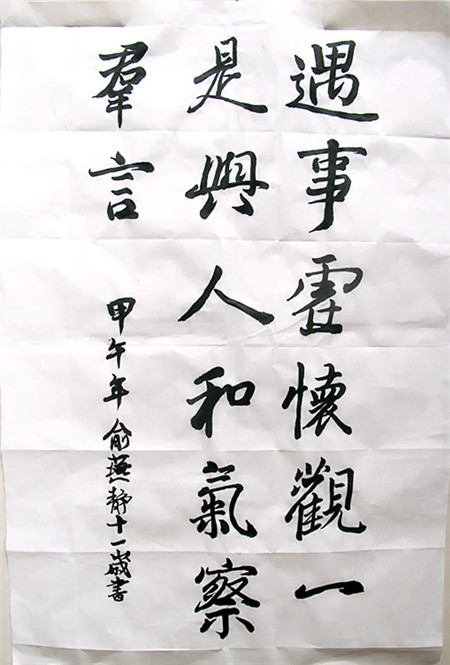 遇事虛懷觀一
是與人和氣察
羣言
甲午年俞靜十一歲書